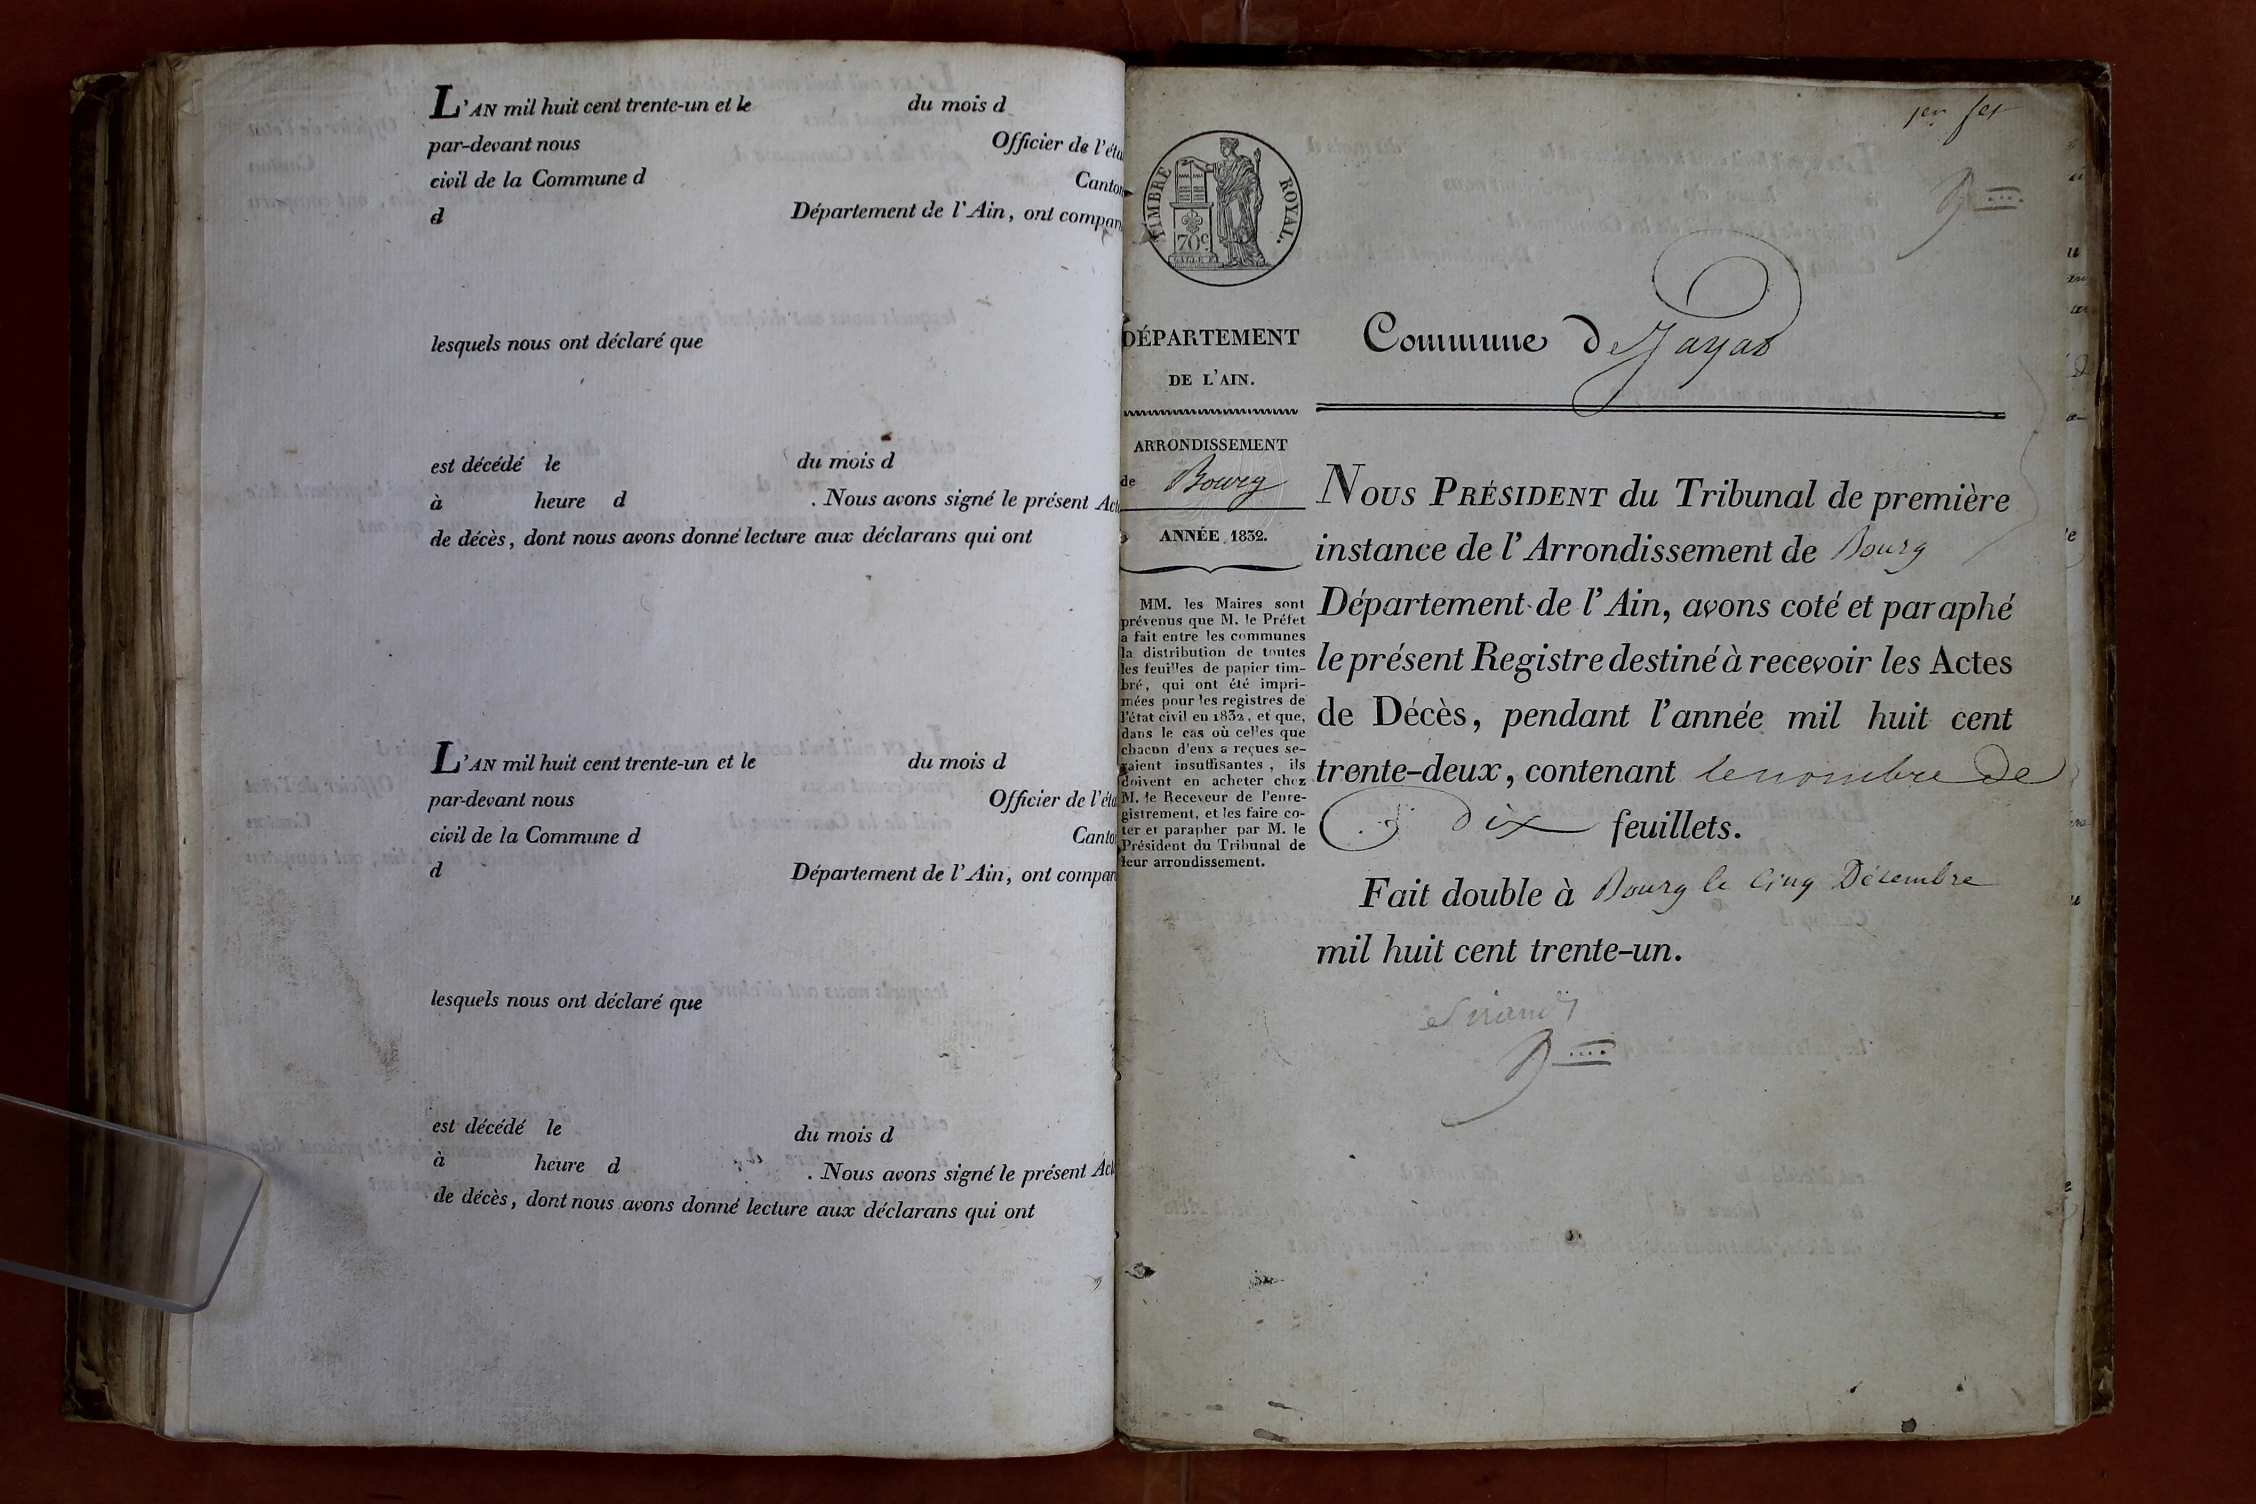 L'AN mil huit cent trente-un et le du mois d
par-devant nous Officier de l'éta
civil de la Commune d Canton
d Département de l'Ain, ont compar
lesquels nous ont déclaré que
est décédé le du mois d
à heure d . Nous avons signé le présent Acte
de décès, dont nous avons donné lecture aux déclarans qui ont
L'AN mil huit cent trente-un et le du mois d
par-devant nous Officier de l'éta
civil de la Commune d Canto
d Département de l'Ain, ont compar
lesquels nous ont déclaré que
est décédé le du mois d
à heure d . Nous avons signé le présent Act
de décès, dont nous avons donné lecture aux déclarans qui ont
1er fet
TIMBRE ROYAL.
70c
DÉPARTEMENT
DE L'AIN.
ARRONDISSEMENT
de Bourg
ANNÉE 1832.
MM. les Maires sont
prévenus que M. le Préfet
a fait entre les communes
la distribution de toutes
les feuilles de papier tim-
bré, qui ont été impri-
mées pour les registres de
l'état civil en 1832, et que,
dans le cas où celles que
chacun d'eux a reçues se-
raient insuffisantes, ils
doivent en acheter chez
M. le Receveur de l'enre-
gistrement, et les faire co-
ter et parapher par M. le
Président du Tribunal de
leur arrondissement.
Commune de Jayat
NOUS PRÉSIDENT du Tribunal de première
instance de l'Arrondissement de Bourg
Département de l'Ain, avons coté et paraphé
le présent Registre destiné à recevoir les Actes
de Décès, pendant l'année mil huit cent
trente-deux, contenant le nombre de
dix feuillets.
Fait double à Bourg le cinq Décembre
mil huit cent trente-un.